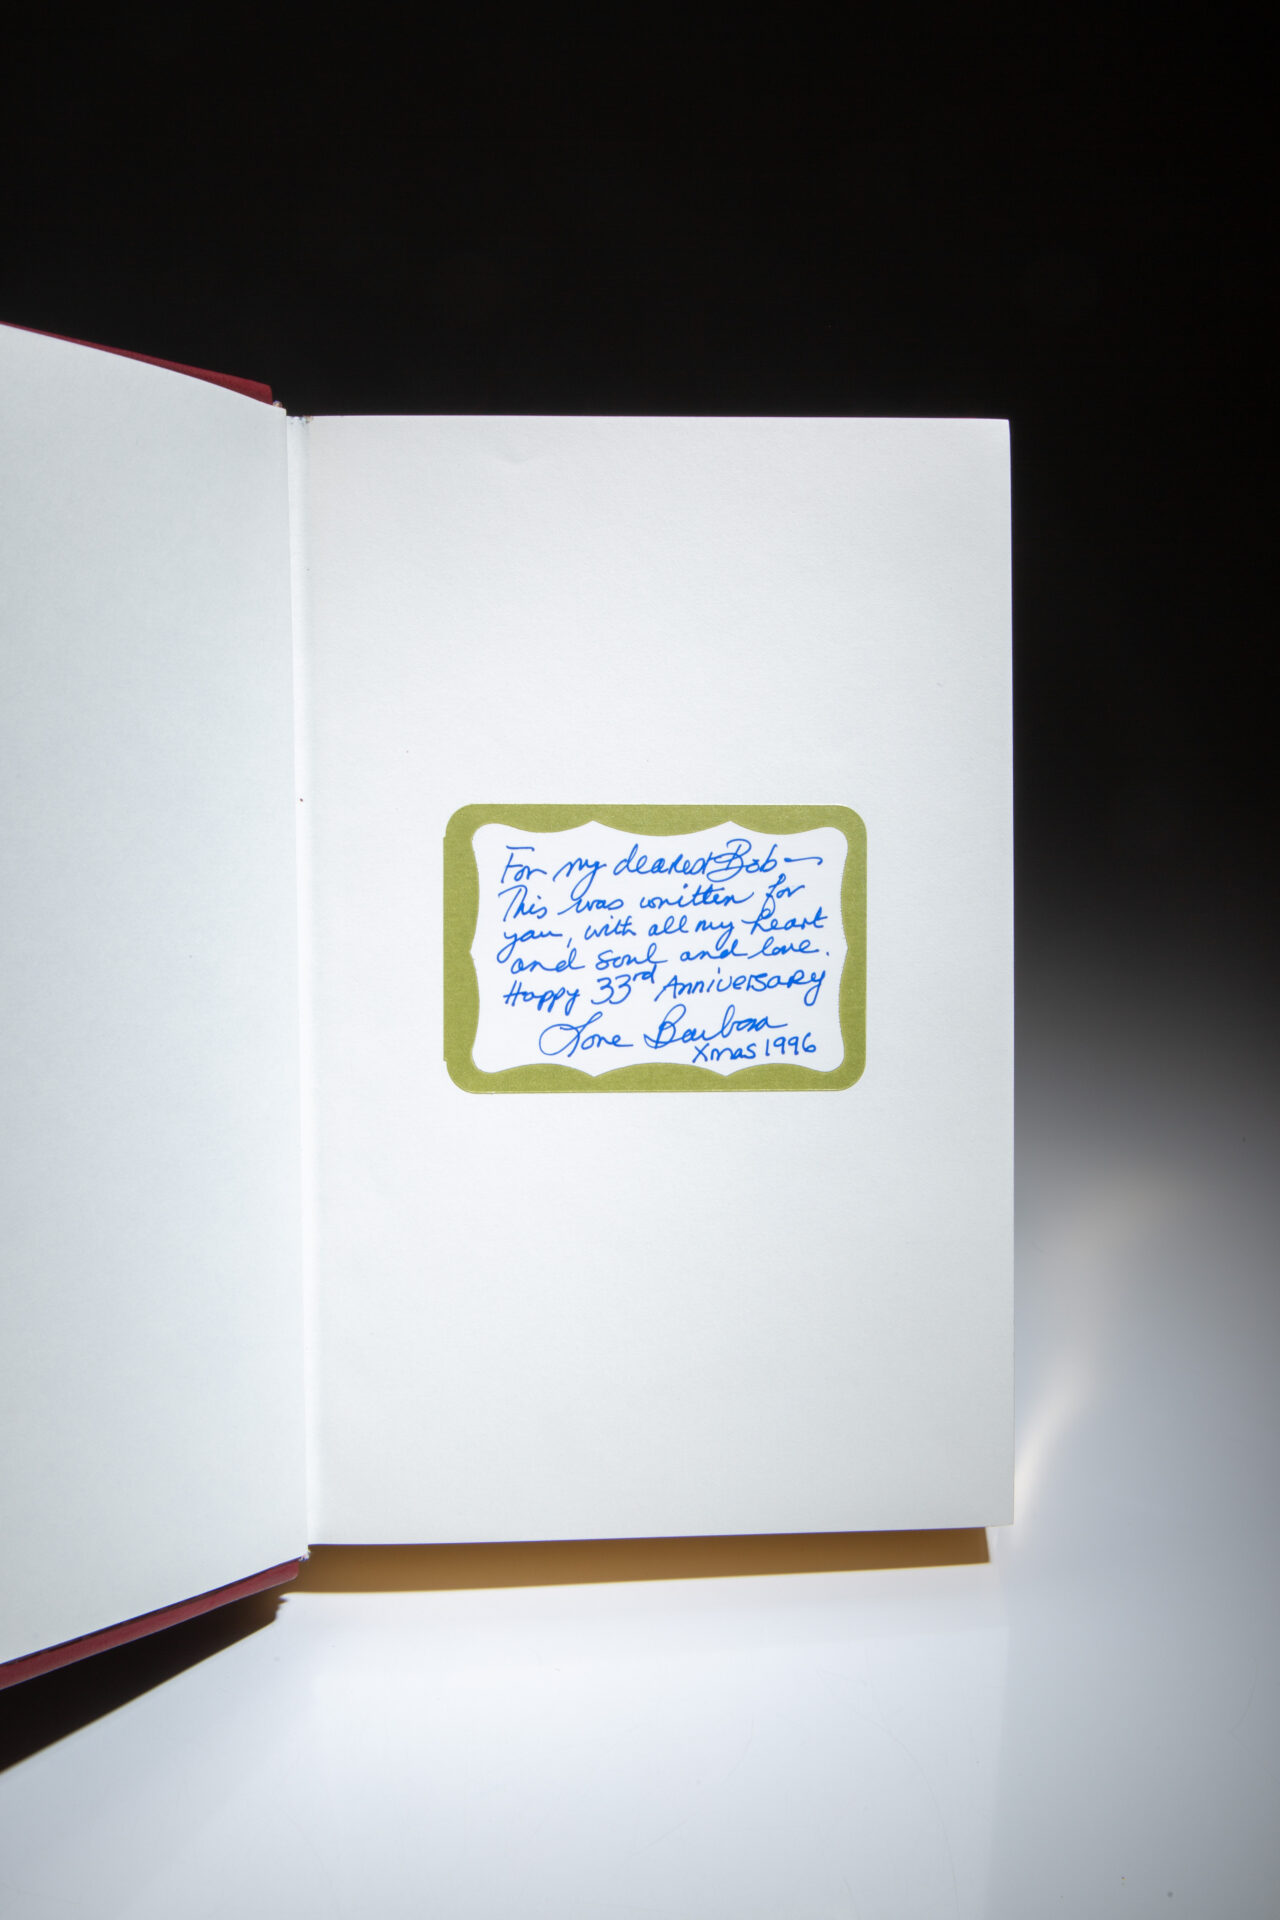 For my dearest Bob —
This was written for
you, with all my heart
and soul and love.
Happy 33rd Anniversary
Love Barbara
Xmas 1996